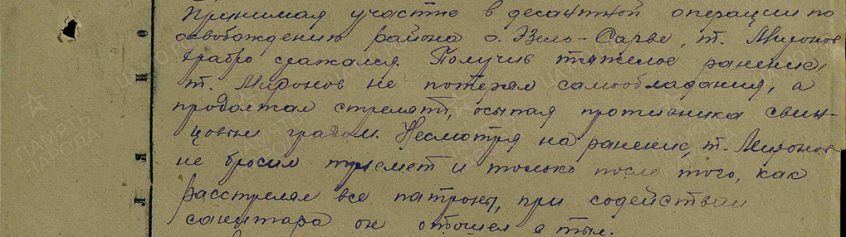 Принимая участие в десантной операции по
освобождению района о. Эзель-Сарве, т. Миронов
храбро сражался. Получив тяжелое ранение,
т. Миронов не потерял самообладания, а
продолжал стрелять, осыпая противника свин-
цовым градом. Несмотря на ранение, т. Миронов
не бросил пулемет и только после того, как
расстрелял все патроны, при содействии
санитара он отошел в тыл.